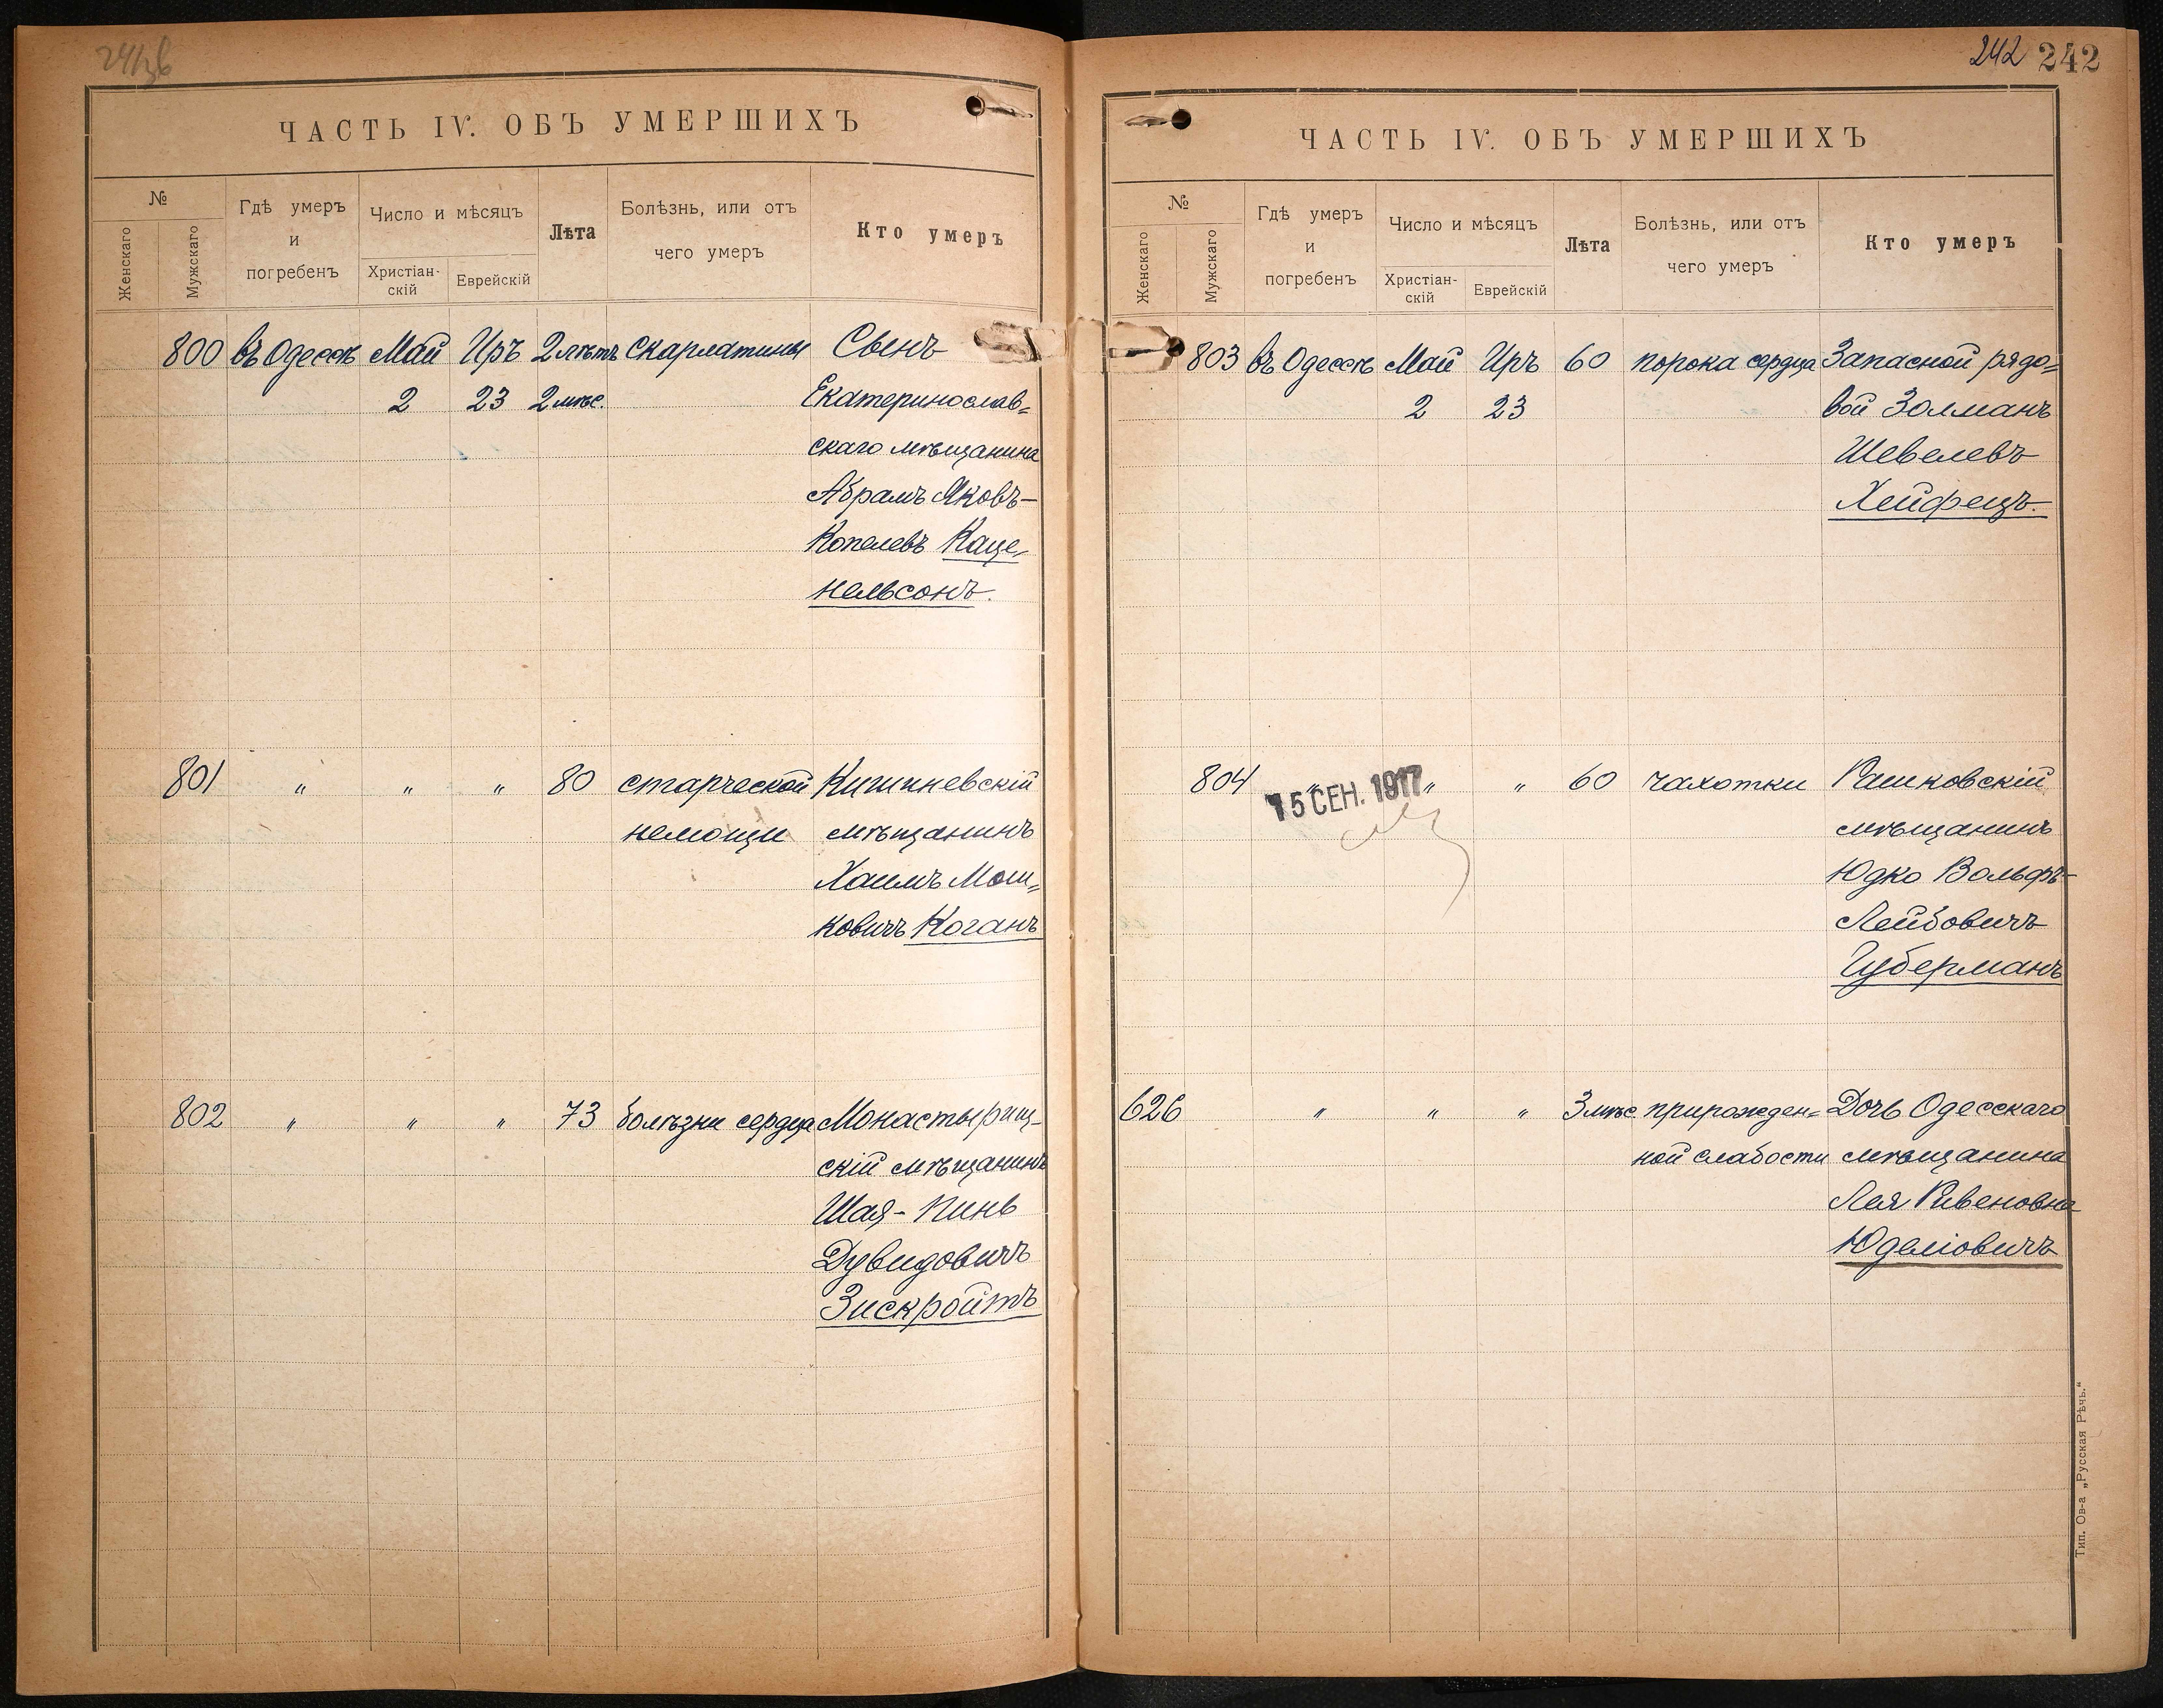 ЧАСТЬ IV. ОБЪ УМЕРШИХЪ
№
Женскаго
Мужскаго
Гдѣ умеръ
и
погребенъ
Число и мѣсяцъ
Христіан-
скій
Еврейскій
Лѣта
Болѣзнь, или отъ
чего умеръ
Кто умеръ
800 въ Одессѣ Май Иръ 2 лѣтъ скарлатины Свенъ
2 23 2 мѣс. Екатеринослав=
скаго мѣщанина
Абрамъ Яковъ-
Копелевъ Каце-
нельсонъ.
801 " " " 80 старческой Кишиневскій
немощи мѣщанинъ
Хаимъ Мош=
ковичъ Коганъ
802 " " " 73 болѣзни сердца Монастырищ-
скій мѣщанинъ
Шая-Пинь
Дувидовичъ
Зискройтъ
242 242
ЧАСТЬ IV. ОБЪ УМЕРШИХЪ
№
Женскаго
Мужскаго
Гдѣ умеръ
и
погребенъ
Число и мѣсяцъ
Христіан-
скій
Еврейскій
Лѣта
Болѣзнь, или отъ
чего умеръ
Кто умеръ
803 въ Одессѣ Май Иръ 60 порока сердца Запасной рядо=
2 23 вой Золманъ
Шевелевъ
Хейфецъ.
804 " " " 60 чахотки Рашковскій
15 СЕН. 1917
мѣщанинъ
Юдко Вольфъ-
Лейбовичъ
Губерманъ
626 " " " 3 мѣс. прирожден= Дочь Одесскаго
ной слабости мѣщанина
Лея Ривеновна
Юделіовичъ
Тип. Ов-а „Русская Рѣчь."